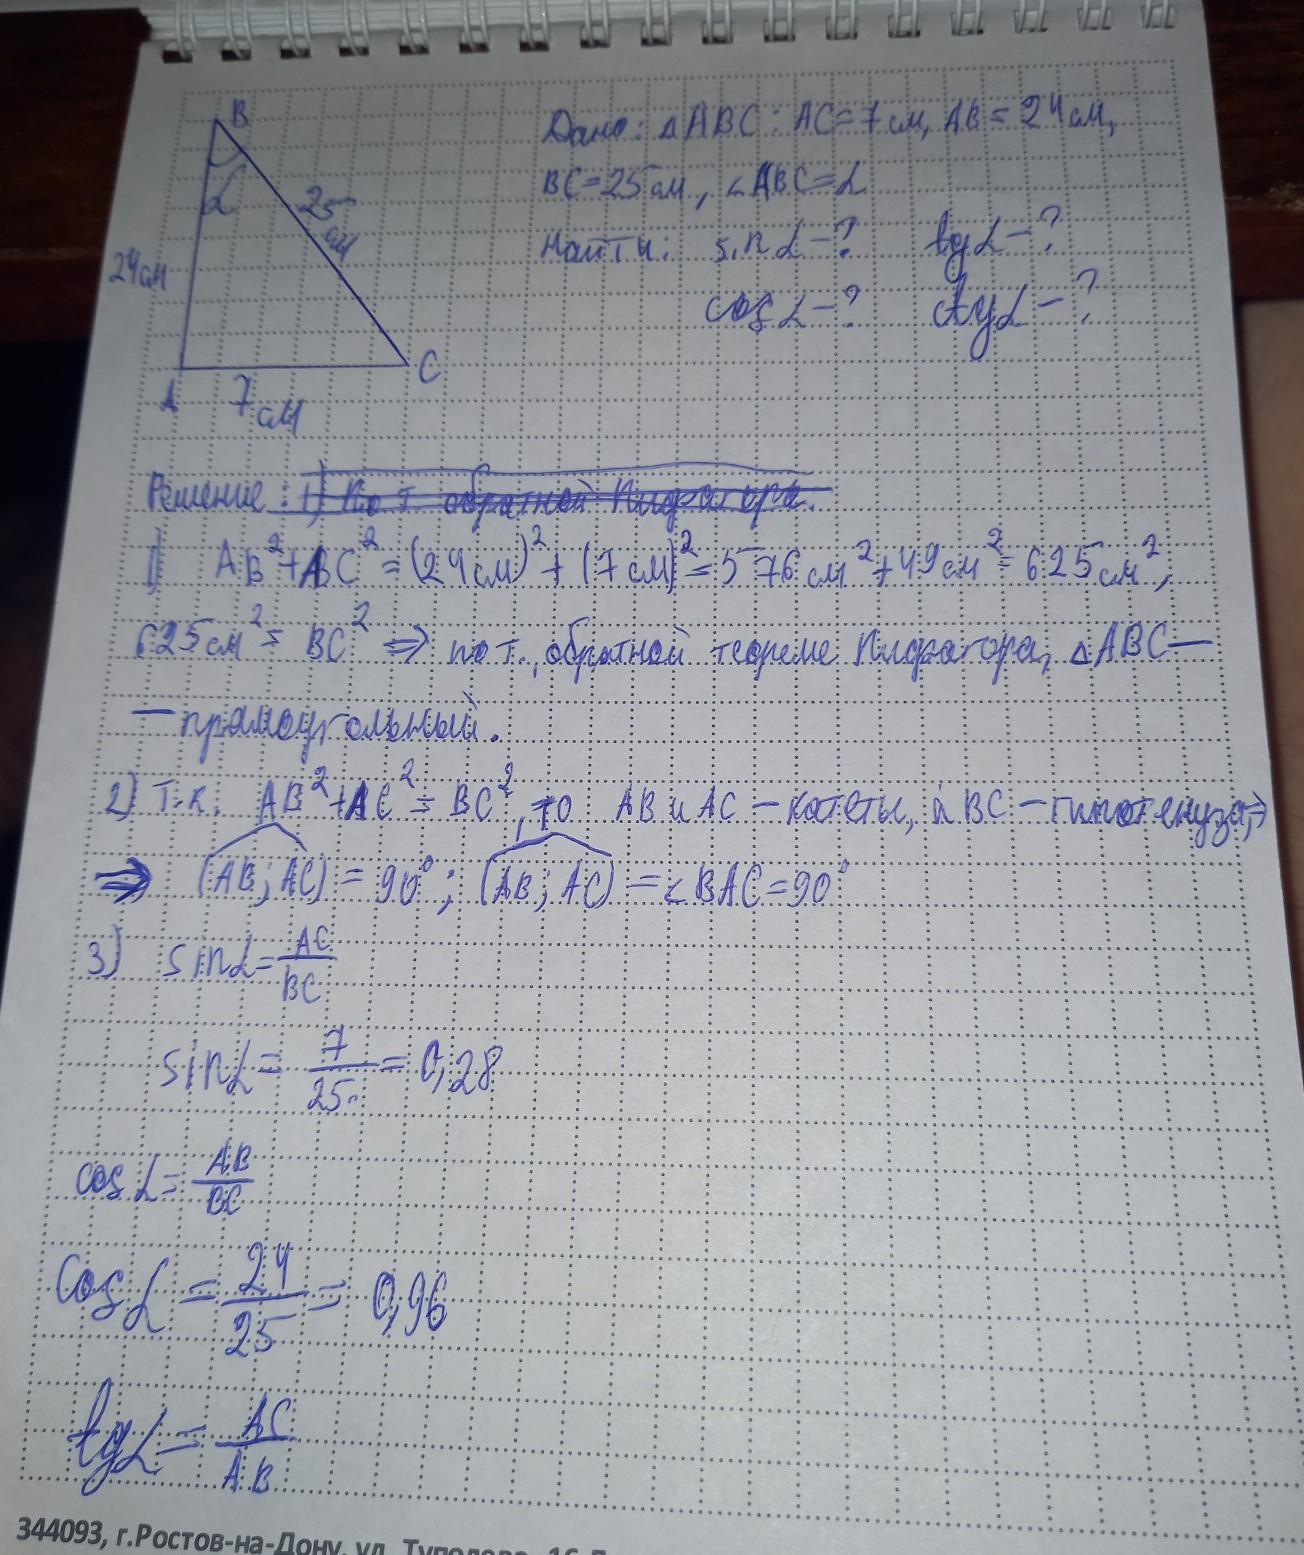 B
α
25 см
24 см
A
7 см
C
Дано: △ABC: AC=7 см, AB=24 см,
BC=25 см, ∠ABC=α
Найти: sin α-? tg α-?
cos α-? ctg α-?
Решение: 1) По т. обратной Пифагора.
1) AB²+AC²=(24 см)²+(7 см)²=576 см²+49 см²=625 см²,
625 см²=BC² ⇒ по т., обратной теореме Пифагора, △ABC—
— прямоугольный.
2) Т.к. AB²+AC²=BC², то AB и AC — катеты, а BC — гипотенуза, ⇒
⇒ (AB; AC) = 90°; (AB; AC) = ∠BAC=90°
3) sin α = AC/BC
sin α = 7/25 = 0,28
cos α = AB/BC
cos α = 24/25 = 0,96
tg α = AC/AB
344093, г.Ростов-на-Дону, ул. Туполева,